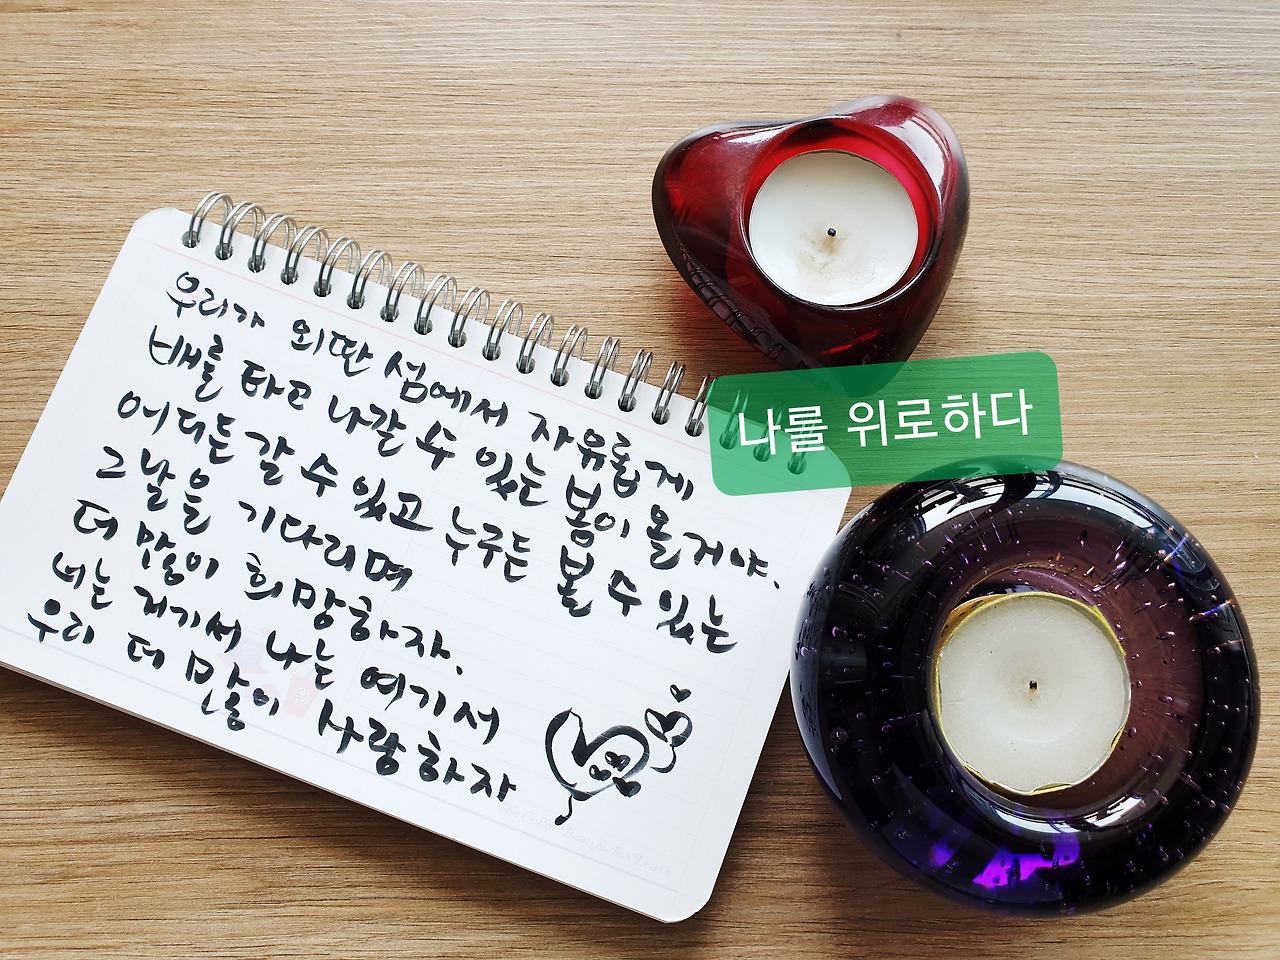 우리가 외딴 섬에서 자유롭게
배를 타고 나갈 수 있는 봄이 올거야.
어디든 갈 수 있고 누구든 볼 수 있는
그날을 기다리며
더 많이 희망하자.
너는 거기서 나는 여기서
우리 더 많이 사랑하자
나를 위로하다
The Coffee Bean & Tea Leaf